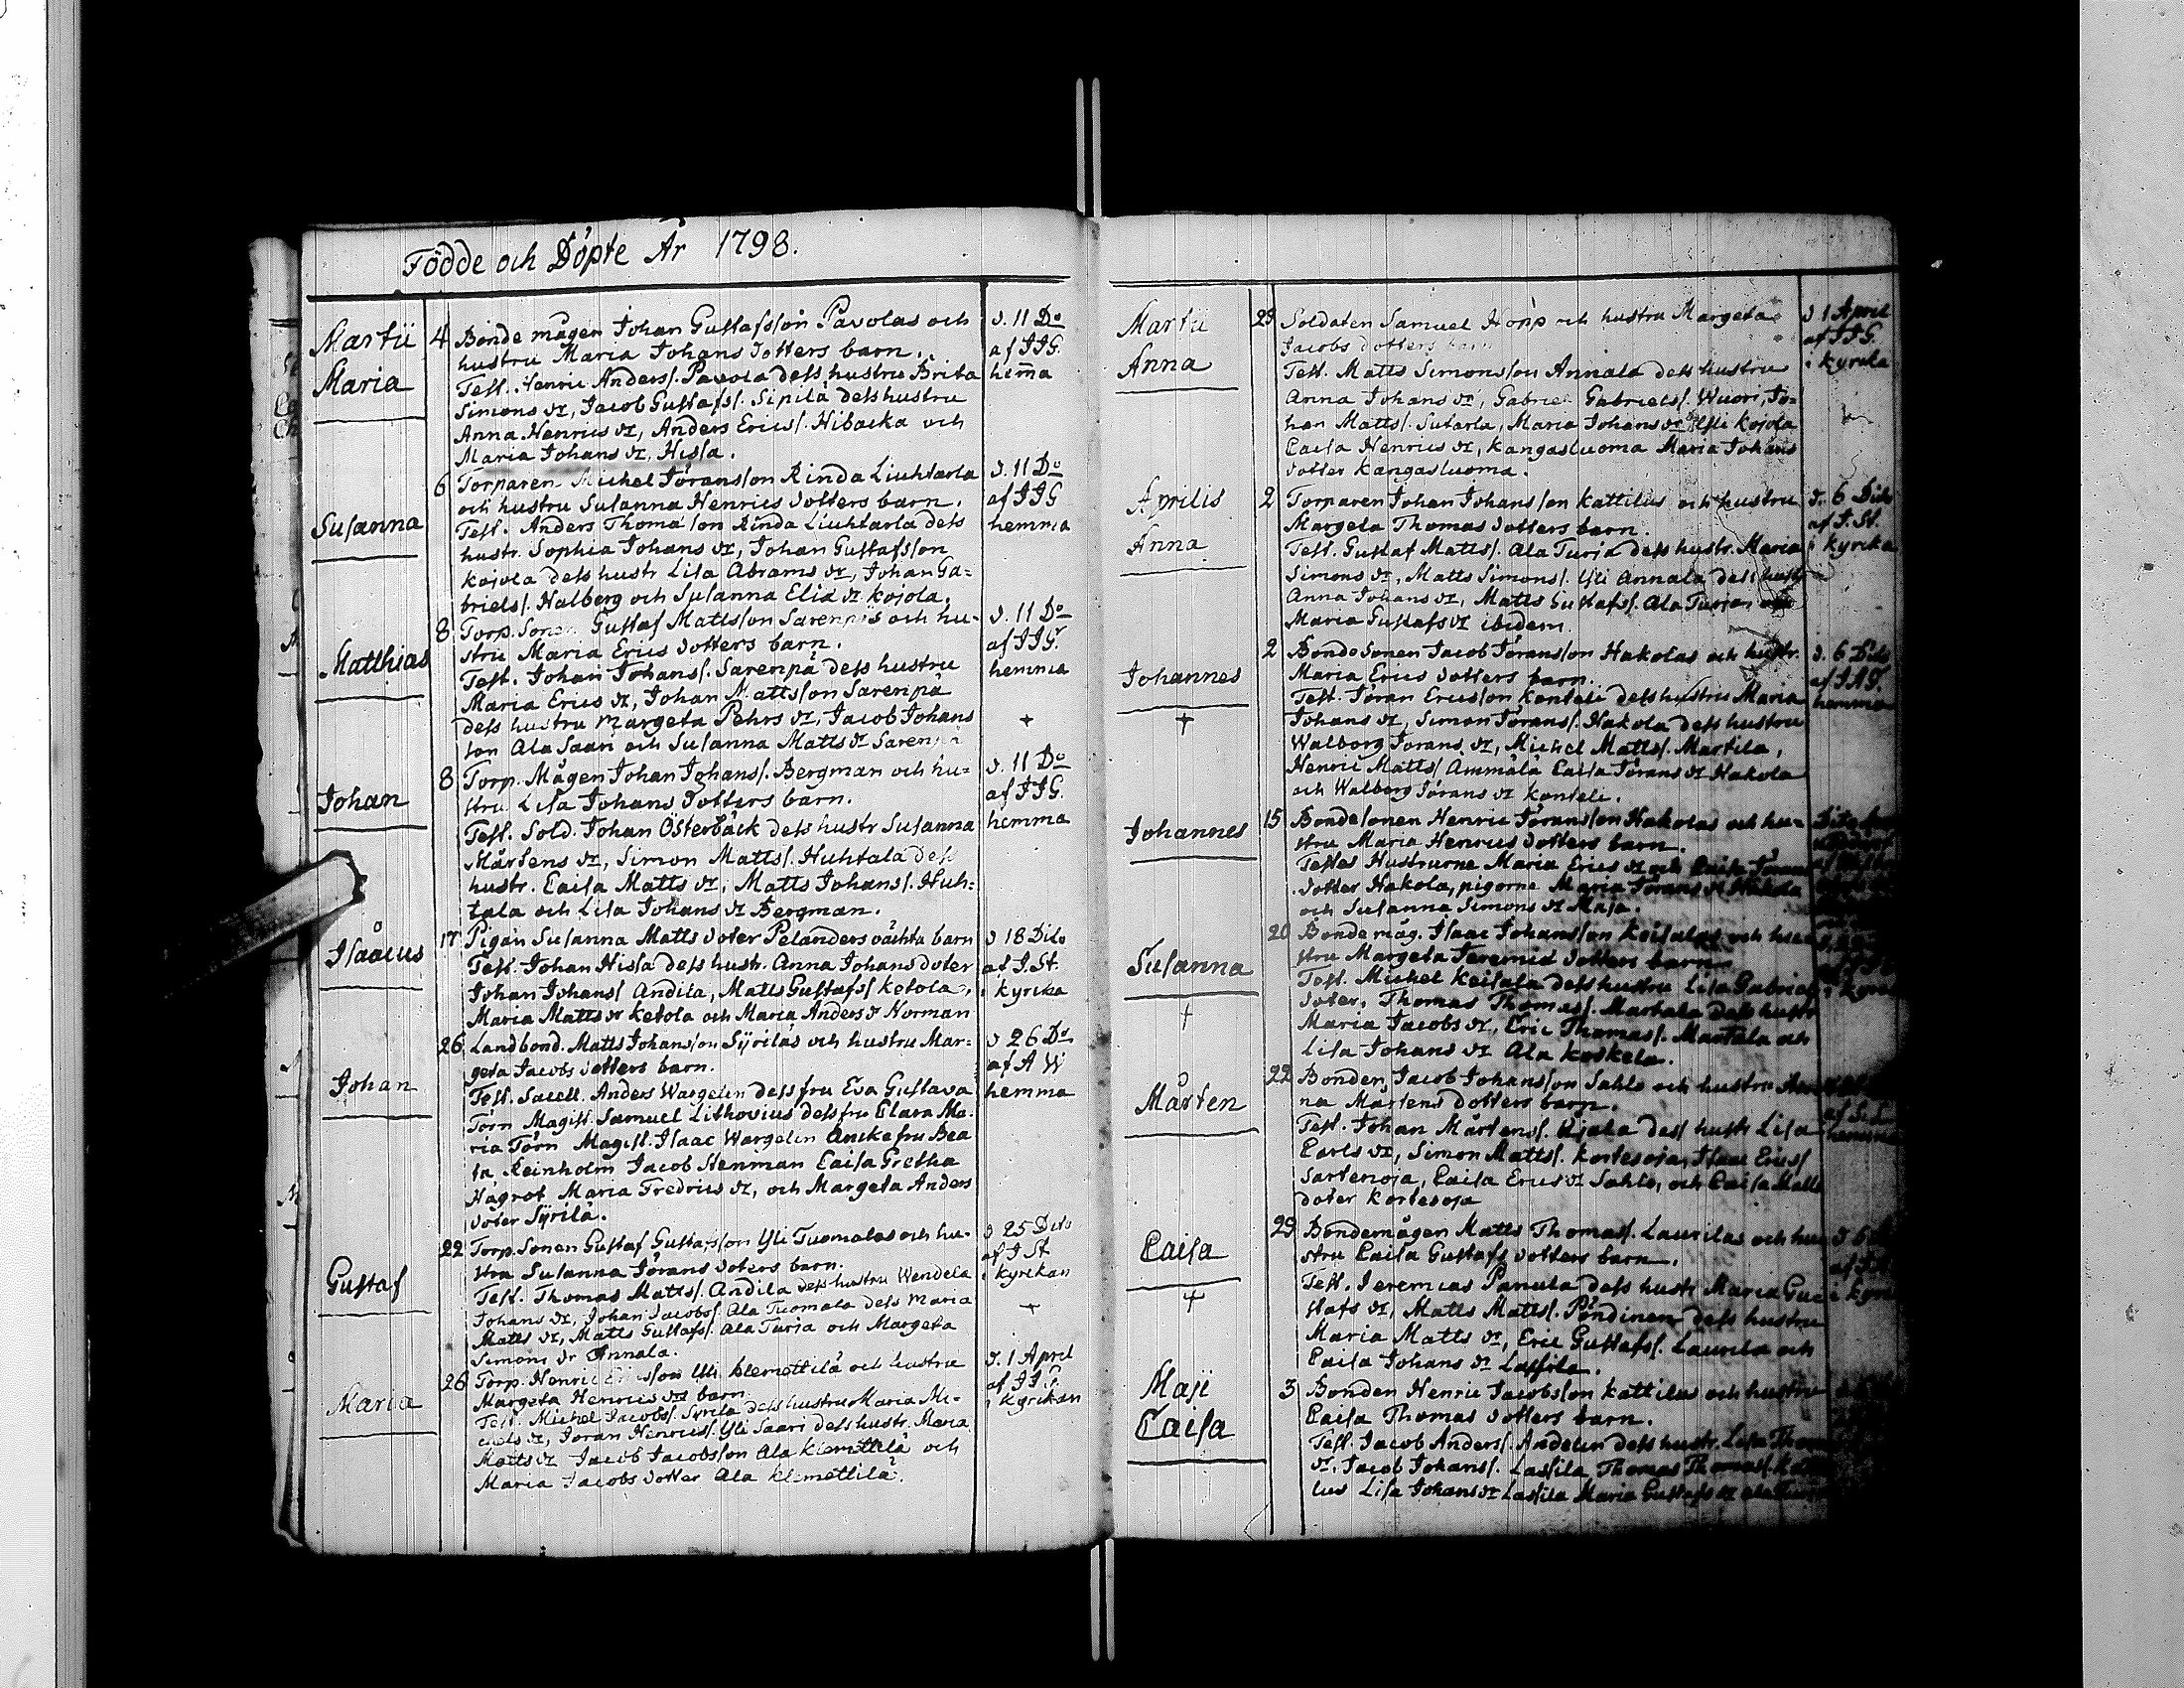 Födde och Döpte År 1798.
Martii 4 Bonde mågen Johan Gustafsson Pavolas och d. 11 Do
Maria hustru Maria Johans dotters barn. af JJG.
Test. Henric Anders/. Pavola dess hustru Brita hem̄a
Simons dr, Jacob Gustafs/. Sipilä dess hustru
Anna Henrics dr, Anders Erics/. Hibacka och
Maria Johans dr. Hissa.
6 Torparen Michel Jöransson Rinda Liuhtarla d. 11 Do
Susanna och hustru Susanna Henrics dotters barn. af JJG
Test. Anders Thomasson Rinda Liuhtarla dess hemma
hustr. Sophia Johans dr, Johan Gustafsson
Kojola dess hustr Lisa Abrams dr, Johan Ga=
briels/. Halberg och Susanna Eliæ dr Kojola.
8 Torp. Sonen Gustaf Mattsson Sarenpäs och hu- d. 11 Do
Matthias stru Maria Erics dotters barn. af JJG.
Test. Johan Johans/. Sarenpä dess hustru hemma
Maria Erics dr, Johan Mattsson Sarenpä
dess hustru Margeta Pehrs dr, Jacob Johans +
son Ala Saari och Susanna Matts dr Sarenpä
8 Torp. Mågen Johan Johans/. Bergman och hu= d. 11 Do
Johan stru Lisa Johans dotters barn. af JJG.
Test. Sold. Johan Österbäck dess hustr Susanna hemma
Mårtens dr, Simon Matts/. Huhtala dess
hustr. Caisa Matts dr, Matts Johans/. Huh=
tala och Lisa Johans dr Bergman.
17 Pigan Susanna Matts doter Pelanders oächta barn d 18 Dito
Isaäcus Test. Johan Hissa dess hustr. Anna Johans doter af J. St.
Johan Johans/ Andila, Matts Gustafs/ Ketola, i kyrka
Maria Matts dr Ketola och Maria Anders dr Norman
26 Landbond. Matts Johansson Syriläs och hustru Mar= d 26 Do
Johan geta Jacobs dotters barn. af A W
Test. Sacell. Anders Wargelin dess fru Eva Gustava hemma
Törn Magist. Samuel Lithovius dess fru Clara Ma.
ria Törn Magist. Isaac Wargelin Ancke fru Bea
ta Reinholm Jacob Stenman Caisa Gretha
Hägrot Maria Fredrics dr, och Margeta Anders
doter Syrilä.
22 Torp. Sonen Gustaf Gustafsson Yli Tuomalas och hu- d 25 Dito
Gustaf stru Susanna Jörans doters barn. af J St
Test. Thomas Matts/. Andila dess hustru Wendela i kyrkan
Johans dr, Johan Jacobs/. Ala Tuomala dess Maria +
Matts dr, Matts Gustafs/. Ala Turja och Margeta
Simons dr Annala.
26 Torp. Henric Ericsson Yli Klemettilä och hustru d. 1 April
Maria Margeta Henrics drs barn. af JJG.
Test. Michel Jacobs/. Syrilä dess hustru Maria Mi- i kyrkan
chels dr, Jöran Henrics/. Yli Saari dess hustr. Maria
Matts dr Jacob Jacobsson Ala Klemettilä och
Maria Jacobs dotter Ala Klemettilä.
Martii 29 Soldaten Samuel Hopp och hustru Margeta d 1 April
Anna Jacobs dotters barn af JJG.
Test. Matts Simonsson Annala dess hustru i kyrcka
Anna Johans dr, Gabriel Gabriels/. Wuori, Jo=
han Matts/. Sutarla, Maria Johans dr Yli Kojola
Caisa Henrics dr, Kangasluoma Maria Johans
dotter Kangasluoma.
Aprilis 2 Torparen Johan Johansson Kattilus och hustru d. 6 Dito
Anna Margeta Thomas dotters barn. af J. St.
Test. Gustaf Matts/. Ala Turja dess hustr. Maria i kyrcka
Simons dr, Matts Simons/. Yli Annala dess hustr
Anna Johans dr, Matts Gustafs/. Ala Turja och
Maria Gustafs dr ibidem.
2 Bonde Sonen Jacob Jöransson Hakolas och hustr. d. 6 Dito
Johannes Maria Erics dotters barn.
+ Test. Jöran Ericsson Konteli dess hustru Maria hemma
Johans dr, Simon Jörans/. Hakola dess hustru
Walborg Jörans dr, Michel Matts/. Martila,
Henric Matts/ Ammälä Caisa Jörans dr Hakola
och Walborg Jörans dr Konteli.
15 Bondesonen Henric Jöransson Hakolas och hu=
Johannes stru Maria Henrics dotters barn.
Testes Hustrurne Maria Erics dr och Caisa Jörans
dotter Hakola, pigorne Maria Jörans dr Hakola
och Susanna Simons dr Maja.
20 Bonde måg. Isaac Johansson Keisalas och hu
Susanna stru Margeta Jeremiæ dotters barn
+ Test. Michel Keisala dess hustru Lisa Gabriels i kyrka
doter. Thomas Thomas/. Martala dess hustr
Maria Jacobs dr, Eric Thomas/. Martala och
Lisa Johans dr Ala Koskela.
22 Bonden Jacob Johansson Sahls och hustru An
Mårten na Mårtens dotters barn.
Test. Johan Mårtens/. Ojala dess hustr Lisa hemma
Carls dr, Simon Matts/. Kortesoja, Isaac Erics/
Sartenoja, Caisa Erics dr Sahls, och Caisa Matts
doter Kortesoja
29 Bondemågen Matts Thomas/. Laurilas och hu d 6
Caisa stru Caisa Gustafs dotters barn.
+ Test. Jeremias Panula dess hustr Maria Gu i kyrka
stafs dr, Matts Matts/. Pöndinen dess hustru
Maria Matts dr, Eric Gustafs/. Laurila och
Caisa Johans dr Lassila.
Maji 3 Bonden Henric Jacobsson Kattilus och hustru
Caisa Caisa Thomas dotters barn.
Test. Jacob Anders/. Andelin dess hustr. Lisa Thom
dr, Jacob Johans/. Lassila, Thomas Thomas/. Kat
lus Lisa Johans dr Lassila Maria Gustafs dr